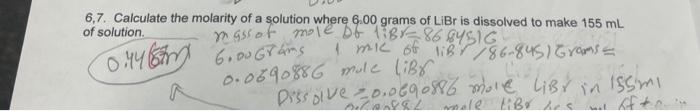 6,7. Calculate the molarity of a solution where 6.00 grams of LiBr is dissolved to make 155 mL
of solution.
mass of mole of LiBr = 86.8451G
6.00 Grams 1 mole of LiBr / 86.8451 Grams =
0.0690886 mole LiBr
Dissolve = 0.0690886 mole LiBr in 155ml